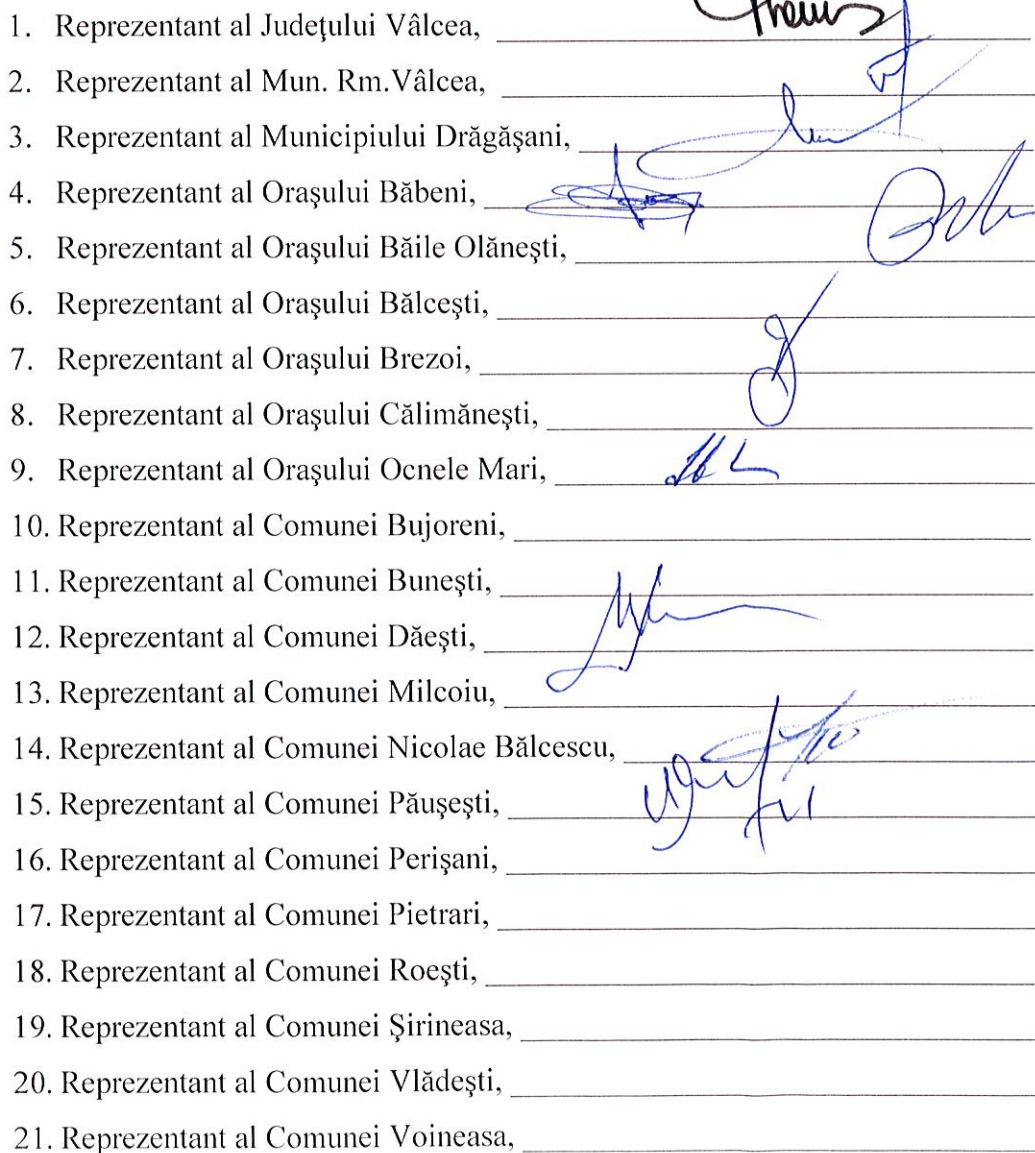 1. Reprezentant al Judeţului Vâlcea,
2. Reprezentant al Mun. Rm.Vâlcea,
3. Reprezentant al Municipiului Drăgăşani,
4. Reprezentant al Oraşului Băbeni,
5. Reprezentant al Oraşului Băile Olăneşti,
6. Reprezentant al Oraşului Bălceşti,
7. Reprezentant al Oraşului Brezoi,
8. Reprezentant al Oraşului Călimăneşti,
9. Reprezentant al Oraşului Ocnele Mari,
10. Reprezentant al Comunei Bujoreni,
11. Reprezentant al Comunei Buneşti,
12. Reprezentant al Comunei Dăeşti,
13. Reprezentant al Comunei Milcoiu,
14. Reprezentant al Comunei Nicolae Bălcescu,
15. Reprezentant al Comunei Păuşeşti,
16. Reprezentant al Comunei Perişani,
17. Reprezentant al Comunei Pietrari,
18. Reprezentant al Comunei Roeşti,
19. Reprezentant al Comunei Şirineasa,
20. Reprezentant al Comunei Vlădeşti,
21. Reprezentant al Comunei Voineasa,